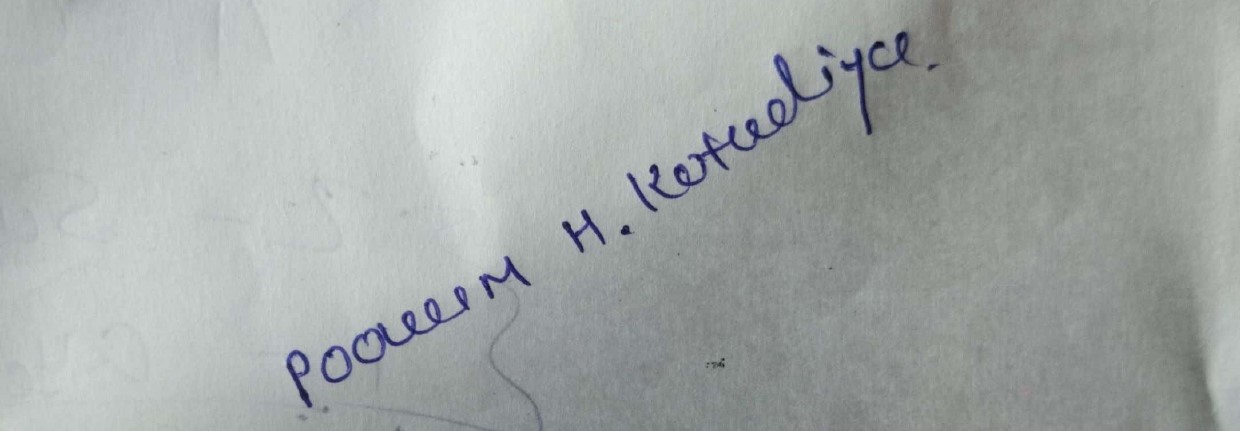 Poonam H. Kotadiya.